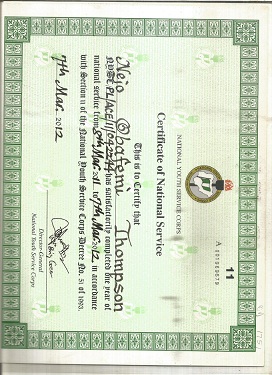 11
A 001909679
NATIONAL YOUTH SERVICE CORPS
Certificate of National Service
This is to Certify that
Nejo Obafemi Thompson
has satisfactorily completed the one year of
national service from 8th Mar. 2011 to 7th Mar. 2012 in accordance
with Section 11 of the National Youth Service Corps Decree No. 51 of 1993.
7th Mar. 2012
Director General
National Youth Service Corps